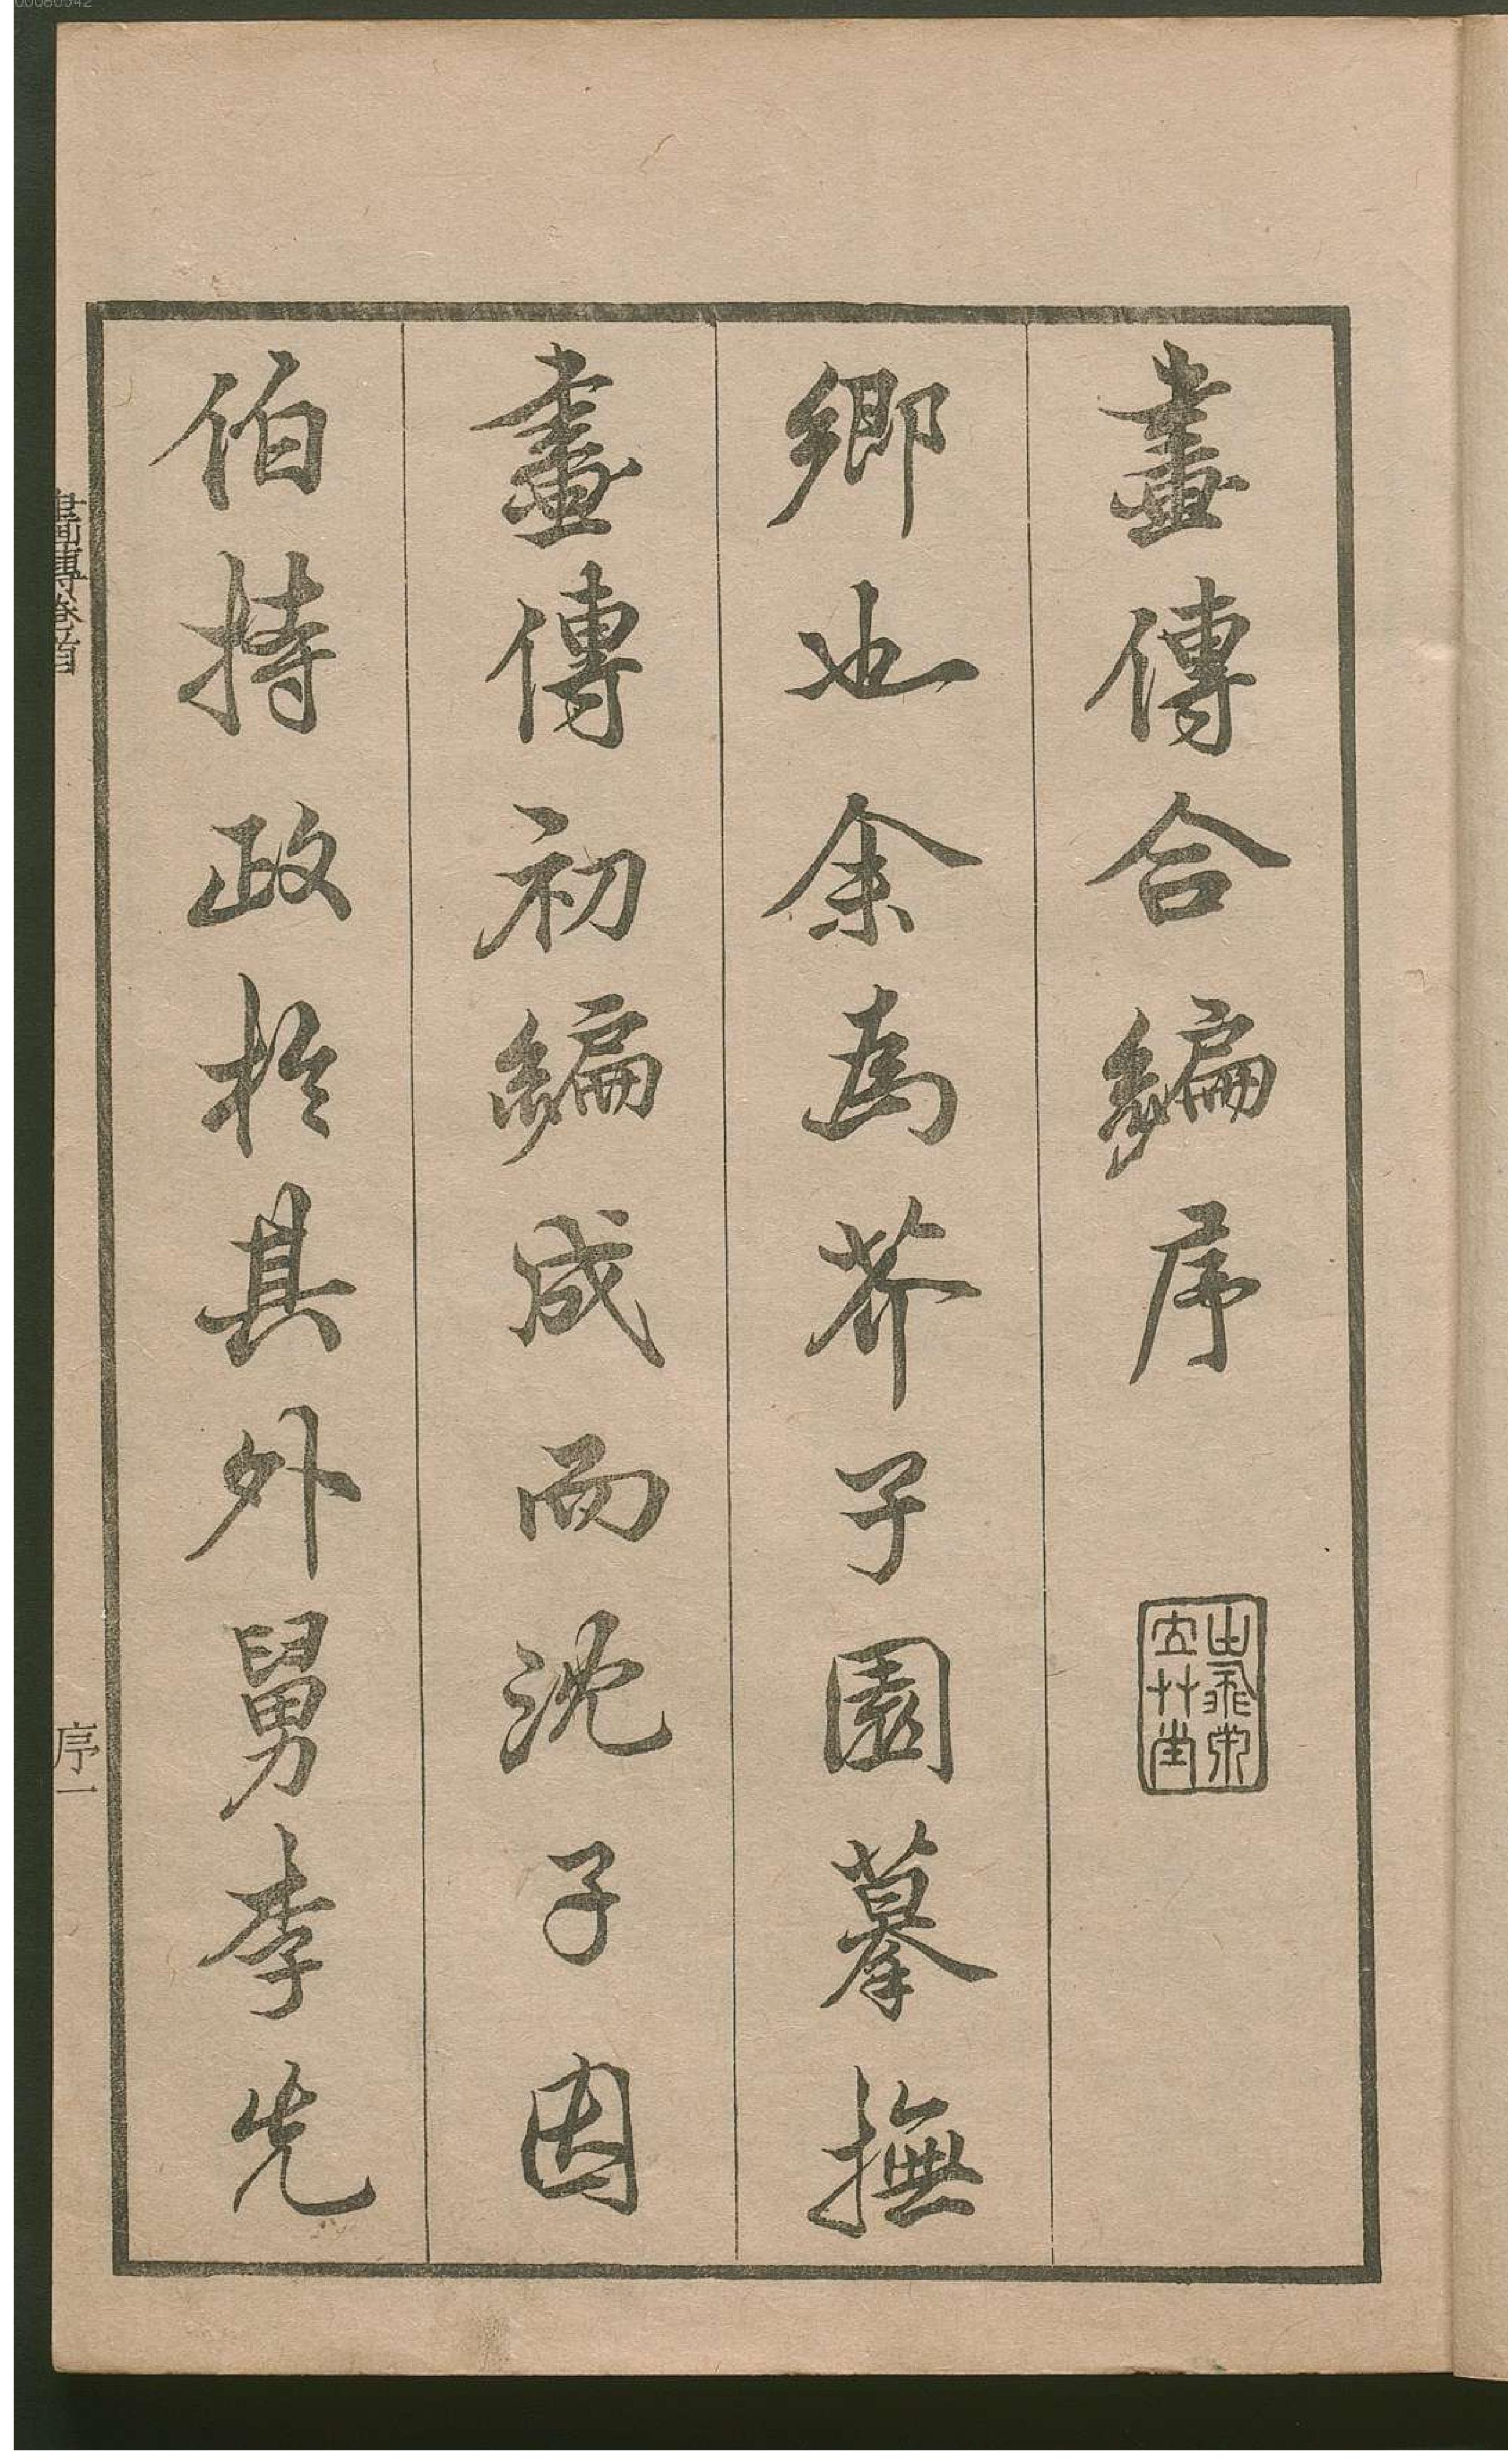 畫傳合編序
鄉也余為芥子園摹撫
畫傳初編成而沈子因
伯持政於其外舅李先
畫傳卷首
序一